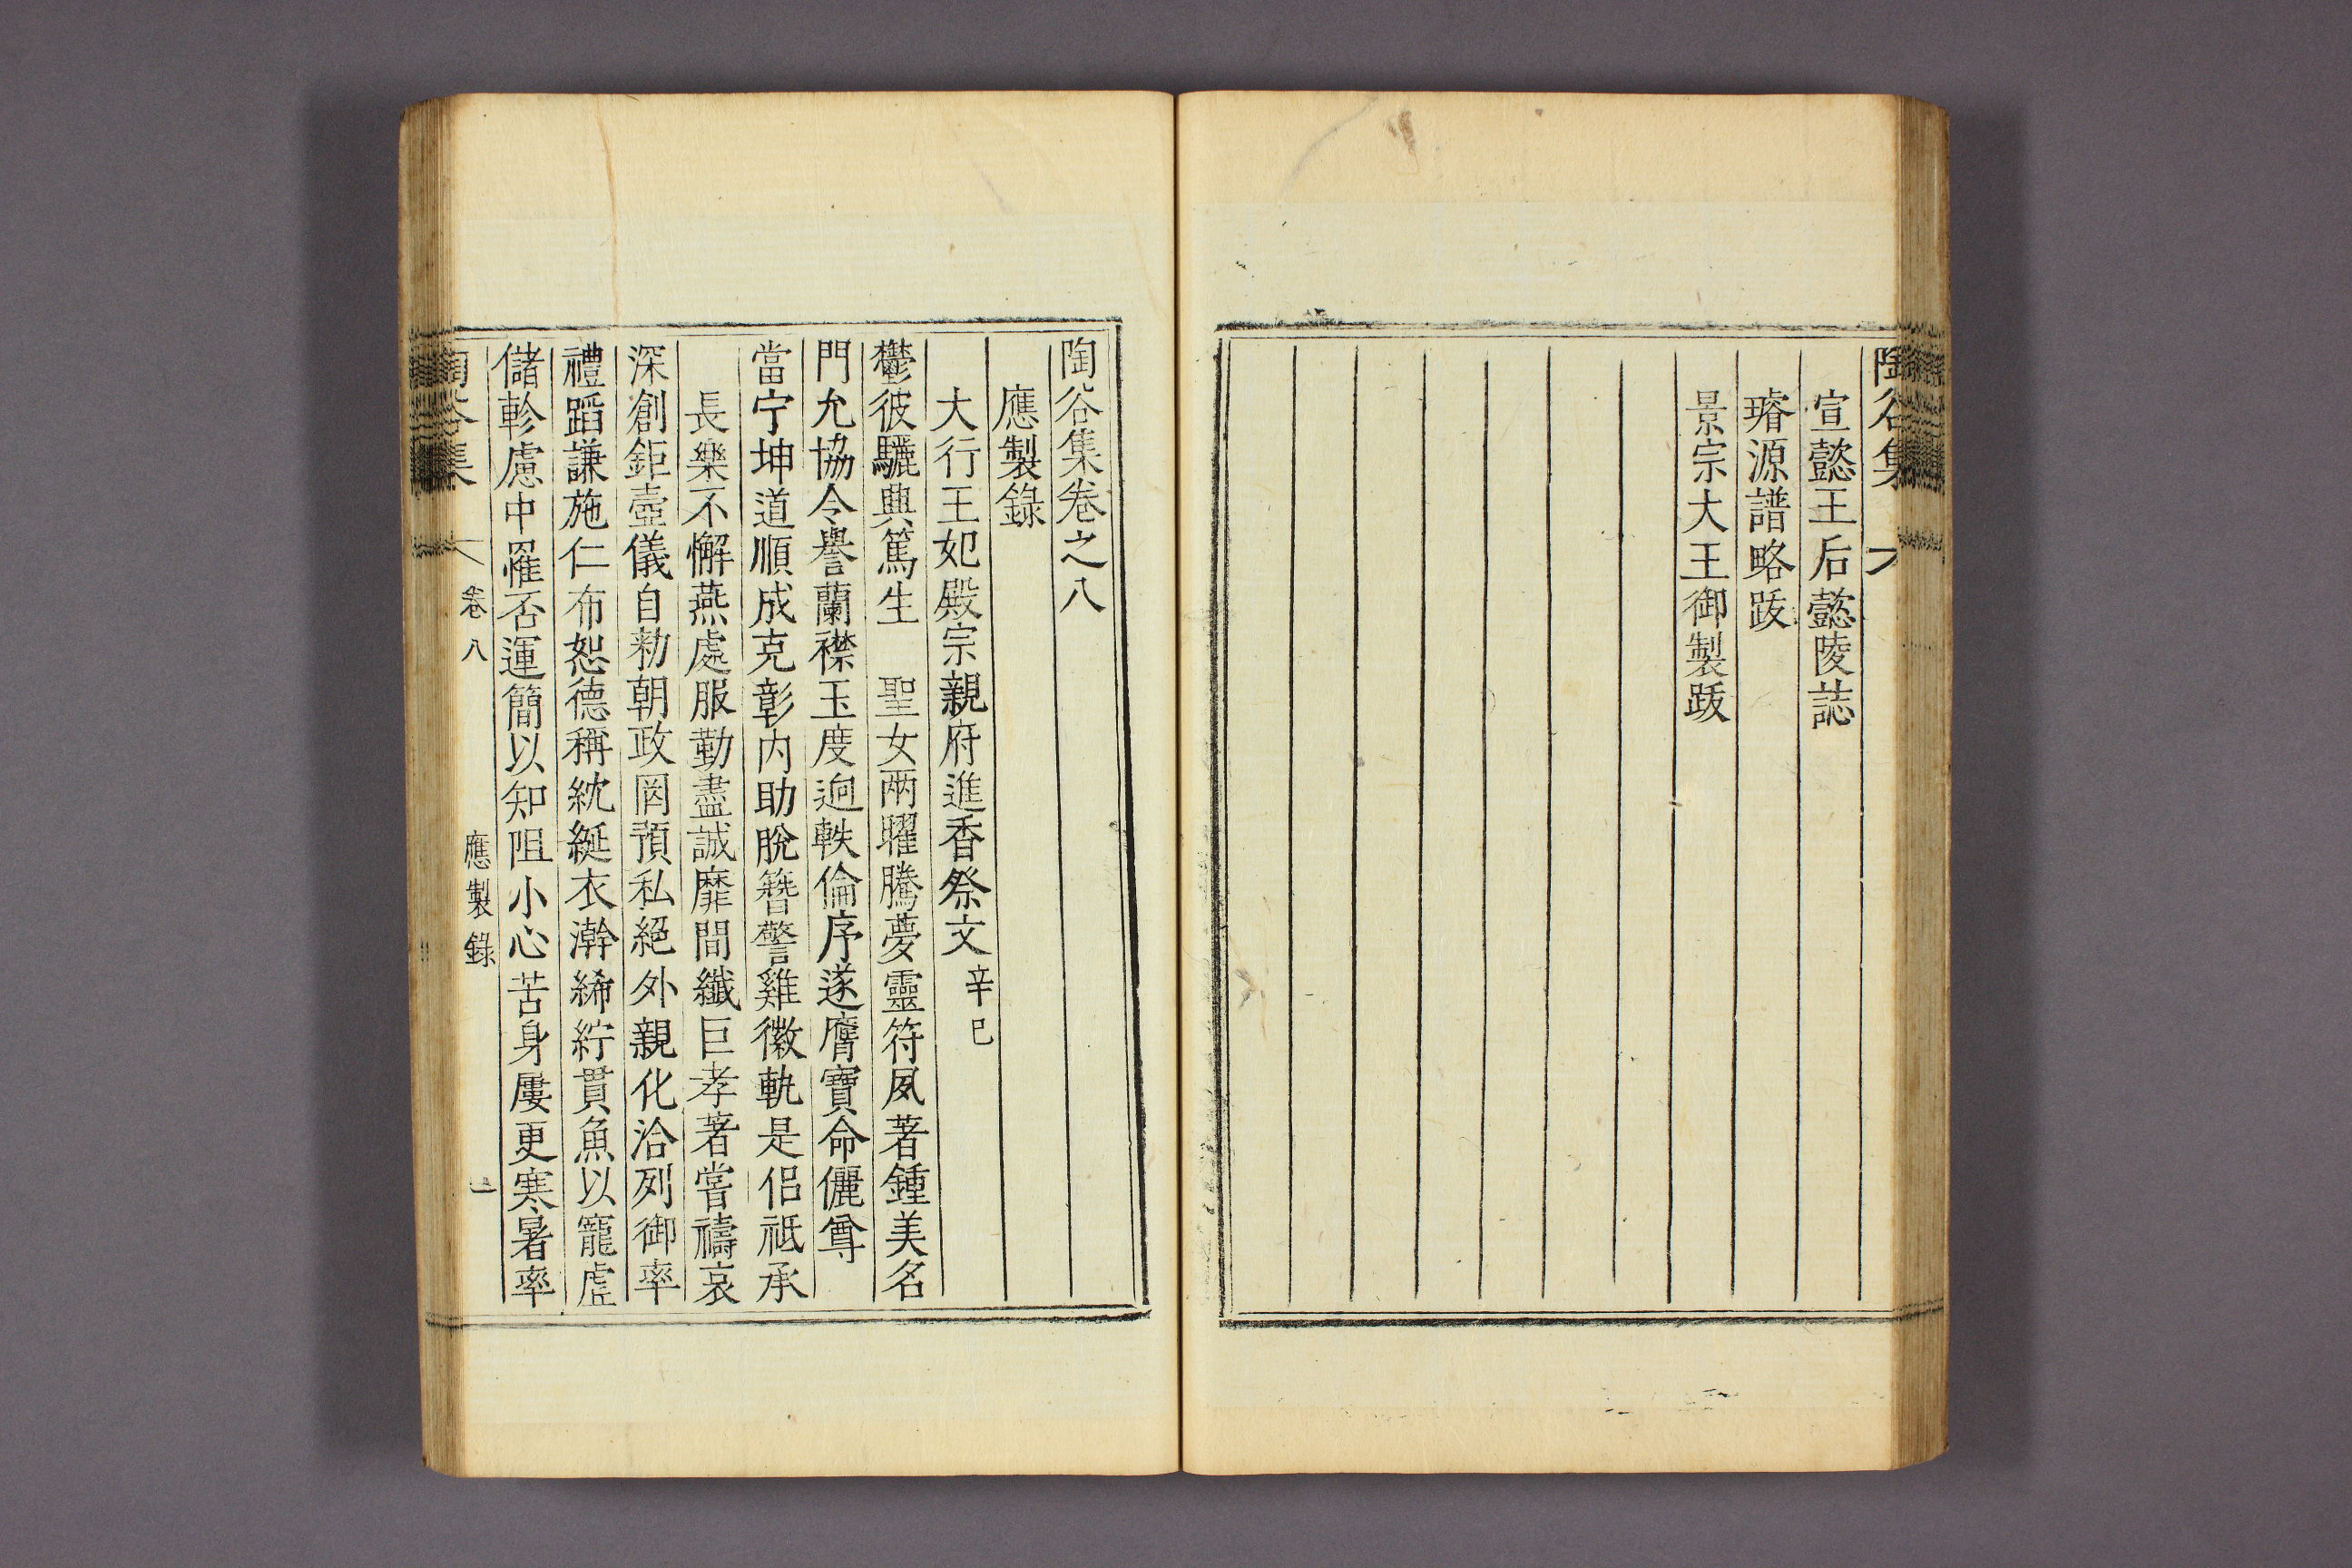 陶谷集
宣懿王后懿陵誌
璿源譜略跋
景宗大王御製跋
陶谷集卷之八
應製錄
大行王妃殿宗親府進香祭文 辛巳
鬱彼驪興篤生 聖女兩曜騰夢靈符夙著鍾美名
門允協令譽蘭襟玉度逈軼倫序遂膺寶命儷尊
當宁坤道順成克彰內助脫簪警雞徽軌是侶祗承
長樂不懈燕處服勤盡誠靡間纖巨孝著嘗禱哀
深創鉅壼儀自勑朝政罔預私絕外親化洽列御率
禮蹈謙施仁布恕德稱紞綖衣澣絺紵貫魚以寵虛
儲軫慮中罹否運簡以知阻小心苦身屢更寒暑率
陶谷集 卷八 應製錄 一